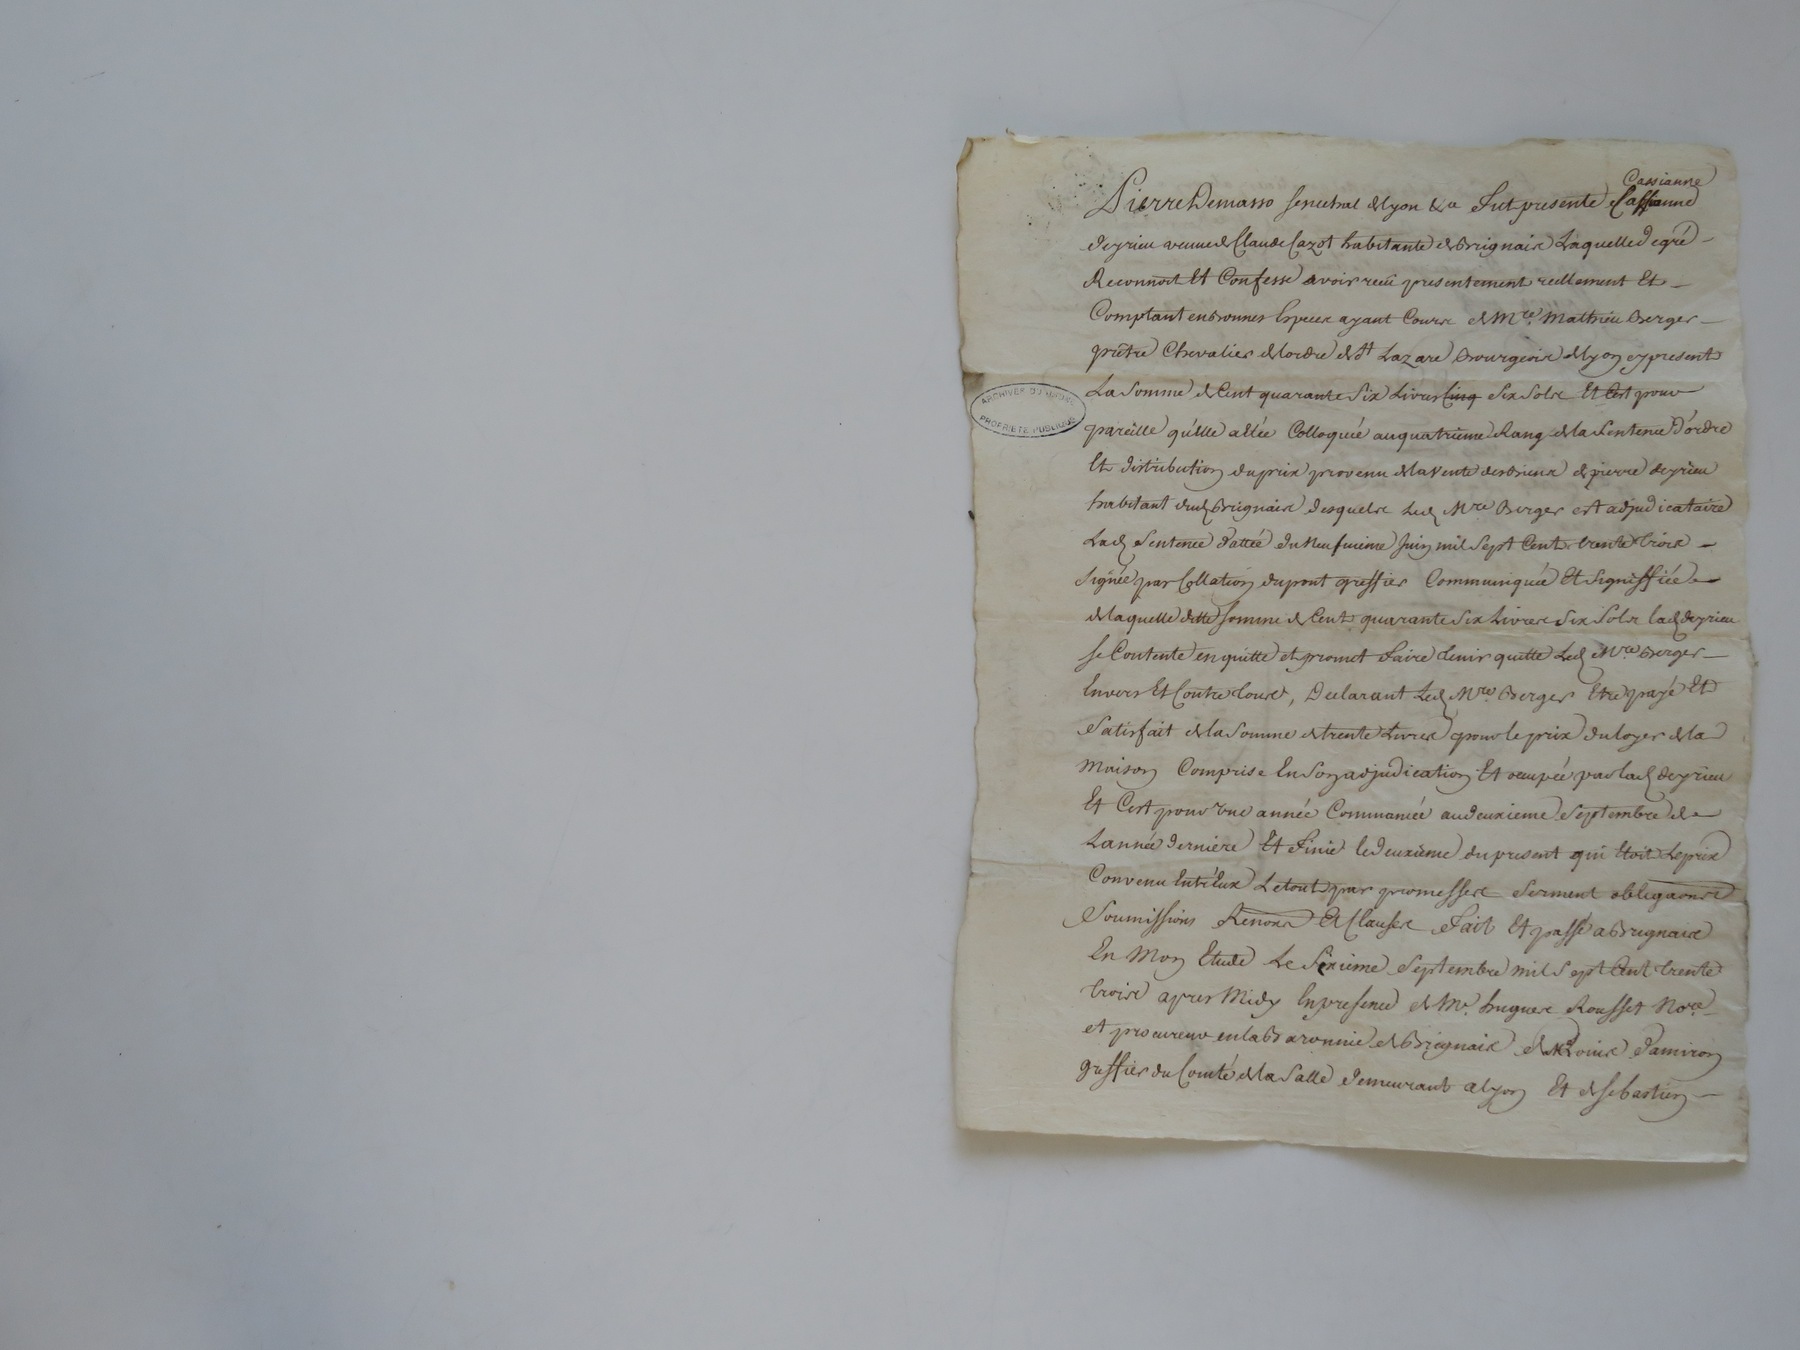 Cassianne
Pierre Demasso senechal de Lyon &ca Fut presente Cassianne
deyrieu veuve de Claude Cazot habitante de Brignais Laquelle de gré -
Reconnoit Et Confesse avoir reçu presentement reellement Et -
Comptant en bonnes Especes ayant Cours de Mre. Mathieu Berger -
prêtre Chevalier de lordre de St Lazare bourgeois de Lyon cy present
La Somme de Cent quarante Six Livres Cinq Six Sols Et Cest pour
pareille qu'elle a élée Colloquée au quatrieme Rang de la Sentence D'ordre
Et distribution du prix provenu de la Vente des biens de pierre deyrieu
habitant dud. Brignais desquels Led. Mre Berger est adjudicataire
Lad. Sentence dattée du Neufvieme Juin mil Sept Cent trente trois -
Signée par Collation dupont greffier Communiquée Et Signiffiée -
de laquelle ditte somme de Cent quarante Six Livres Six Sols lad. deyrieu
se Contente en quitte et promet Faire tenir quitte Led. Mre. Berger -
Envers Et Contre tous, Declarant Led. Mre. Berger Etre payé Et
Satisfait de la Somme de trente Livres pour le prix du loyer de la
Maison Comprise En Son adjudication Et occupée par lad. deyrieu
Et Cest pour une année Commancée au deuxieme Septembre de
Lannée derniere Et Finie le deuxieme du present qui Etoit Le prix
Convenu Entr'Eux Le tout par promesses Serment obligaons
Soumissions Renons Et Clauses Fait Et passé a Brignais
En Mon Etude Le Sixieme Septembre mil Sept Cent trente
trois apres Midy En presence de Me. hugues Rousset Nore.
et procureur en la Baronnie de Brignais de Me Louis Damiron
greffier du Comté de la Salle demeurant a Lyon Et de Sebastien -
ARCHIVES DU RHÔNE
PROPRIETE PUBLIQUE